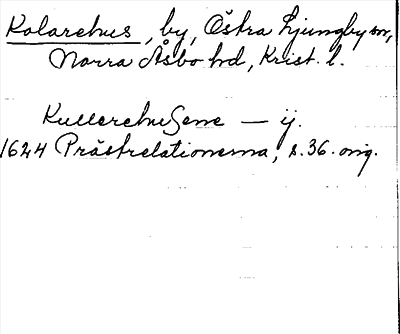 Kolarehus, by, Östra Ljungby sn,
Norra Åsbo hd, Krist. l.
Kullerehusene — ij.
1624 Prästrelationerna, s. 36. orig.